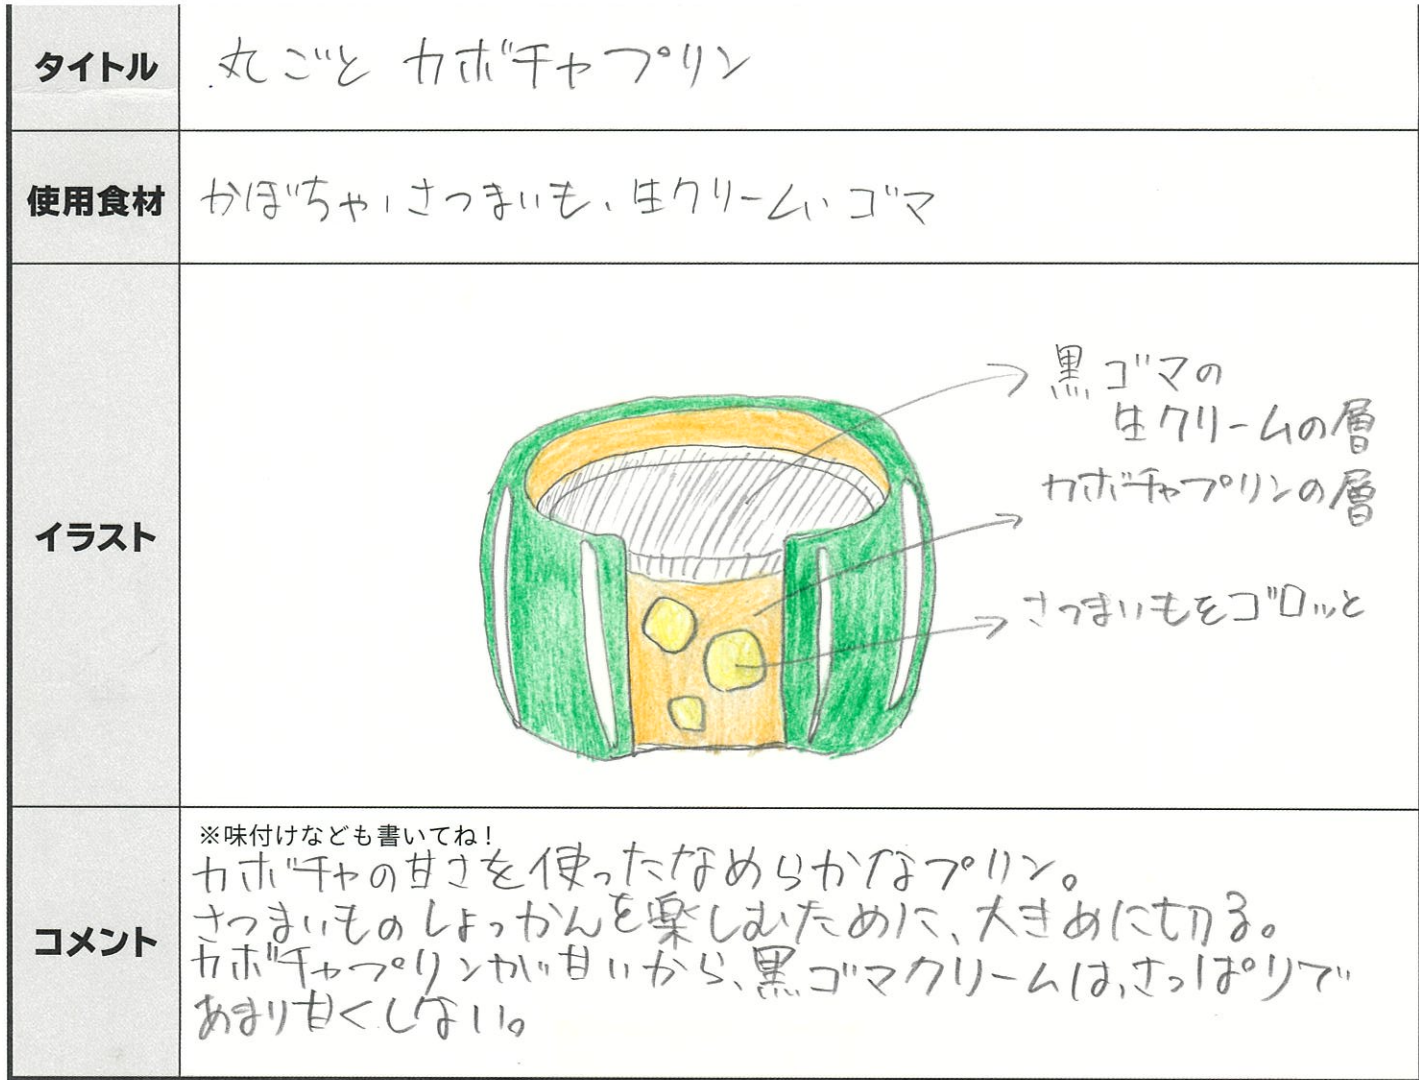 タイトル
丸ごと カボチャプリン
使用食材
かぼちゃ、さつまいも、生クリーム、ゴマ
イラスト
黒ゴマの
生クリームの層
カボチャプリンの層
さつまいもをゴロッと
コメント
※味付けなども書いてね!
カボチャの甘さを使ったなめらかなプリン。
さつまいものしょっかんを楽しむために、大きめに切る。
カボチャプリンが甘いから、黒ゴマクリームは、さっぱりで
あまり甘くしない。